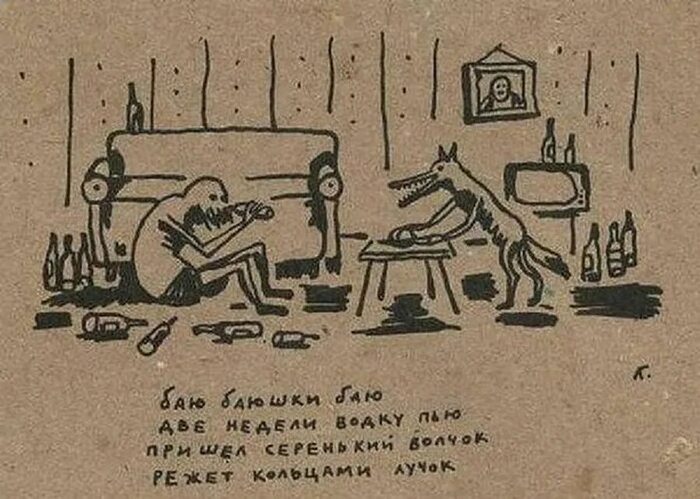 К.
баю баюшки баю
две недели водку пью
пришел серенький волчок
режет кольцами лучок